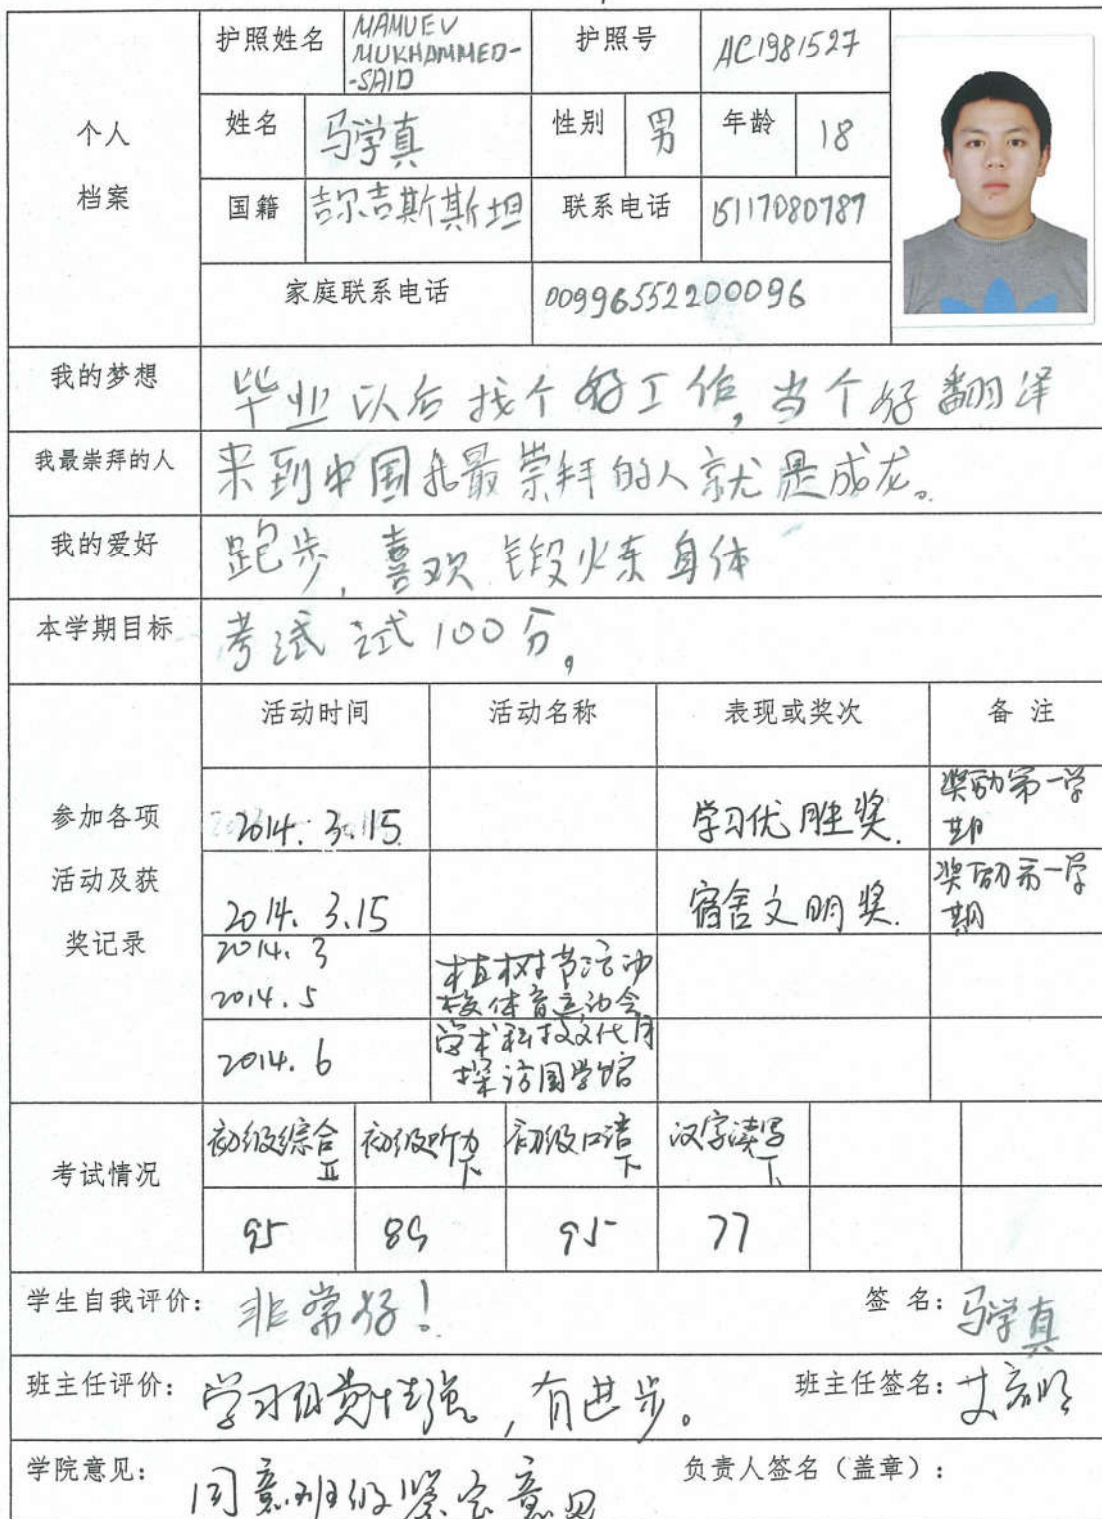 个人
档案
护照姓名
MAMUEV
MUKHAMMED-
-SAID
护照号
AC1981527
姓名
马学真
性别
男
年龄
18
国籍
吉尔吉斯斯坦
联系电话
15117080787
家庭联系电话
00996552200096
我的梦想
毕业以后找个好工作,当个好翻译
我最崇拜的人
来到中国我最崇拜的人就是成龙。
我的爱好
跑步,喜欢锻炼身体
本学期目标
考试试100分,
参加各项
活动及获
奖记录
活动时间
活动名称
表现或奖次
备 注
2014. 3.15
学习优胜奖.
奖励第一学
期
2014. 3.15
宿舍文明奖.
奖励第一学
期
2014. 3
2014. 5
植树节活动
校体育运动会
2014. 6
学术科技文化月
探访国学馆
考试情况
初级综合
II
初级听力
下
初级口语
下
汉字读写
下
95
89
95
77
学生自我评价:
非常好!
签 名:
马学真
班主任评价:
学习自觉性强,有进步。
班主任签名:
学院意见:
同意班级鉴定意见
负责人签名(盖章):